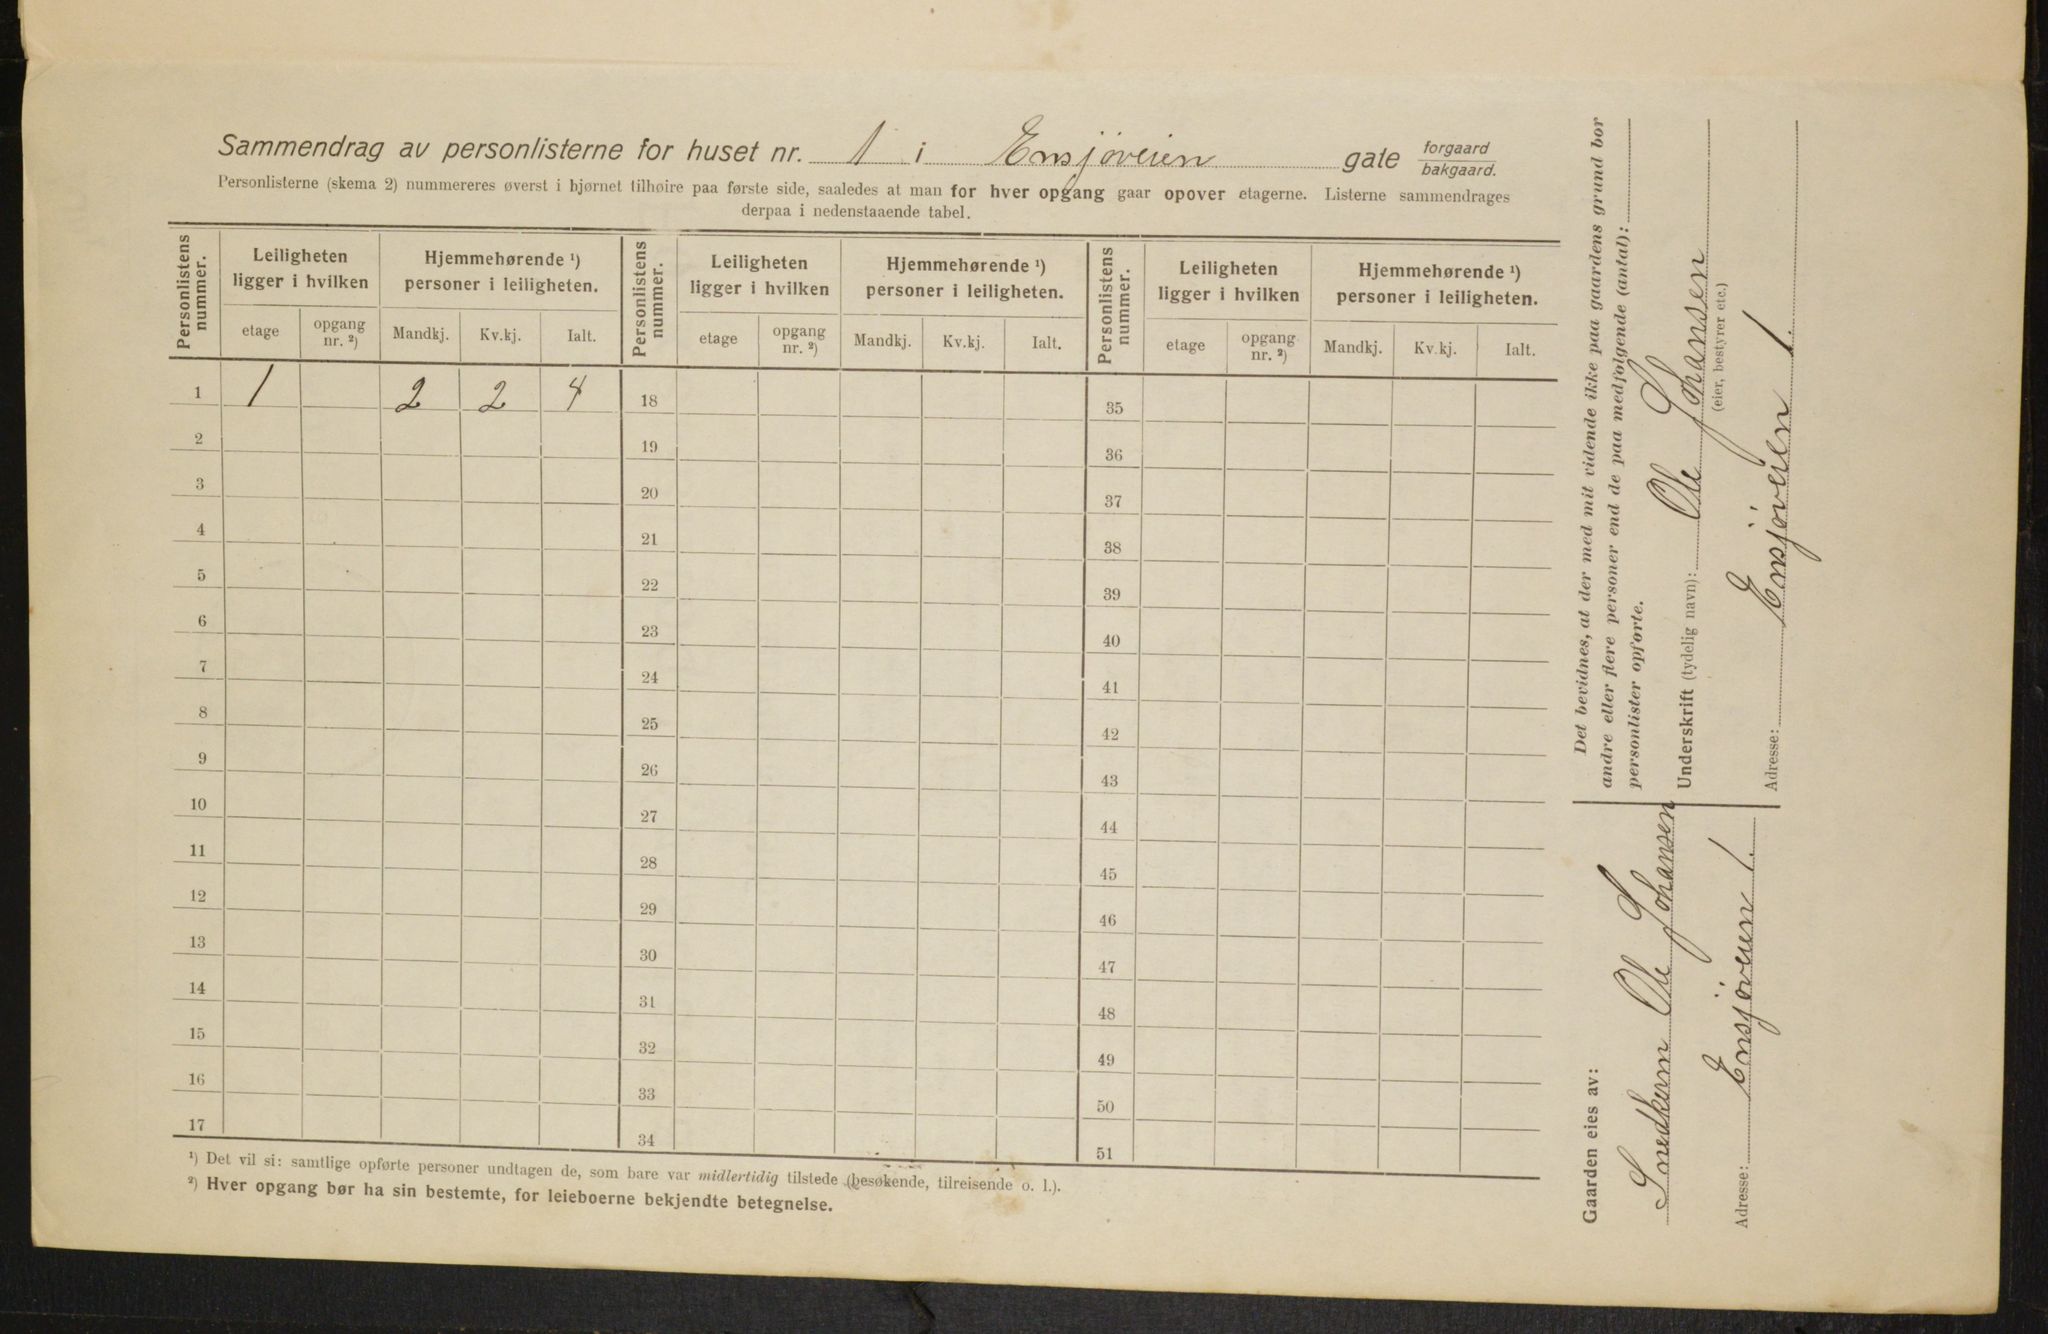 Sammendrag av personlisterne for huset nr. 1 i Ensjøveien gate forgaard bakgaard.
Personlisterne (skema 2) nummereres øverst i hjørnet tilhøire paa første side, saaledes at man for hver opgang gaar opover etagerne. Listerne sammendrages
derpaa i nedenstaaende tabel.
Personlistens nummer. Leiligheten ligger i hvilken Hjemmehørende ¹) personer i leiligheten. Personlistens nummer. Leiligheten ligger i hvilken Hjemmehørende ¹) personer i leiligheten. Personlistens nummer. Leiligheten ligger i hvilken Hjemmehørende ¹) personer i leiligheten.
etage opgang nr. ²) Mandkj. Kv.kj. Ialt. etage opgang nr. ²) Mandkj. Kv.kj. Ialt. etage opgang nr. ²) Mandkj. Kv.kj. Ialt.
1 1 2 2 4 18 35
2 19 36
3 20 37
4 21 38
5 22 39
6 23 40
7 24 41
8 25 42
9 26 43
10 27 44
11 28 45
12 29 46
13 30 47
14 31 48
15 32 49
16 33 50
17 34 51
¹) Det vil si: samtlige opførte personer undtagen de, som bare var midlertidig tilstede (besøkende, tilreisende o. l.).
²) Hver opgang bør ha sin bestemte, for leieboerne bekjendte betegnelse.
Gaarden eies av:
Snedkern Ole Johansen
Adresse: Ensjøveien 1.
Det bevidnes, at der med mit vidende ikke paa gaardens grund bor
andre eller flere personer end de paa medfølgende (antal):
personlister opførte.
Underskrift (tydelig navn): Ole Johansen
(eier, bestyrer etc.)
Adresse: Ensjøveien 1.